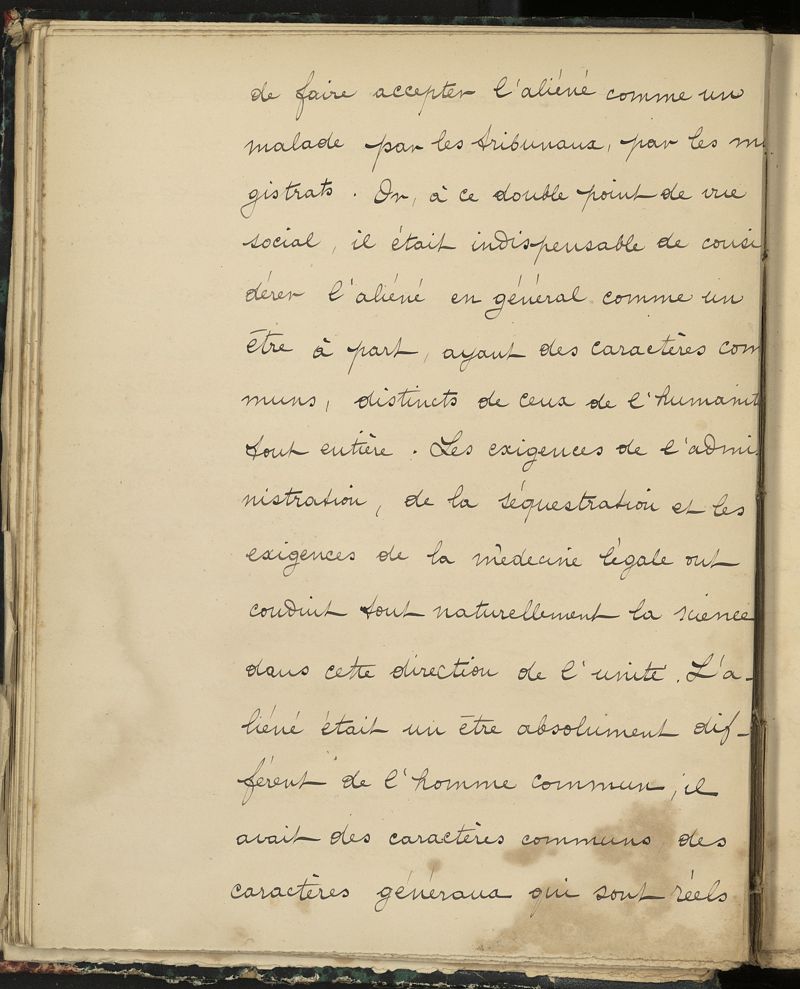 de faire accepter l'aliéné comme un
malade par les tribunaux, par les ma
gistrats. Or, à ce double point de vue
social, il était indispensable de consi
dérer l'aliéné en général comme un
être à part, ayant des caractères com
muns, distincts de ceux de l'humanit
tout entière. Les exigences de l'admi
nistration, de la séquestration et les
exigences de la médecine légale ont
conduit tout naturellement la science
dans cette direction de l'unité. L'a-
liéné était un être absolument dif-
férent de l'homme commun; il
avait des caractères communs des
caractères généraux qui sont réels